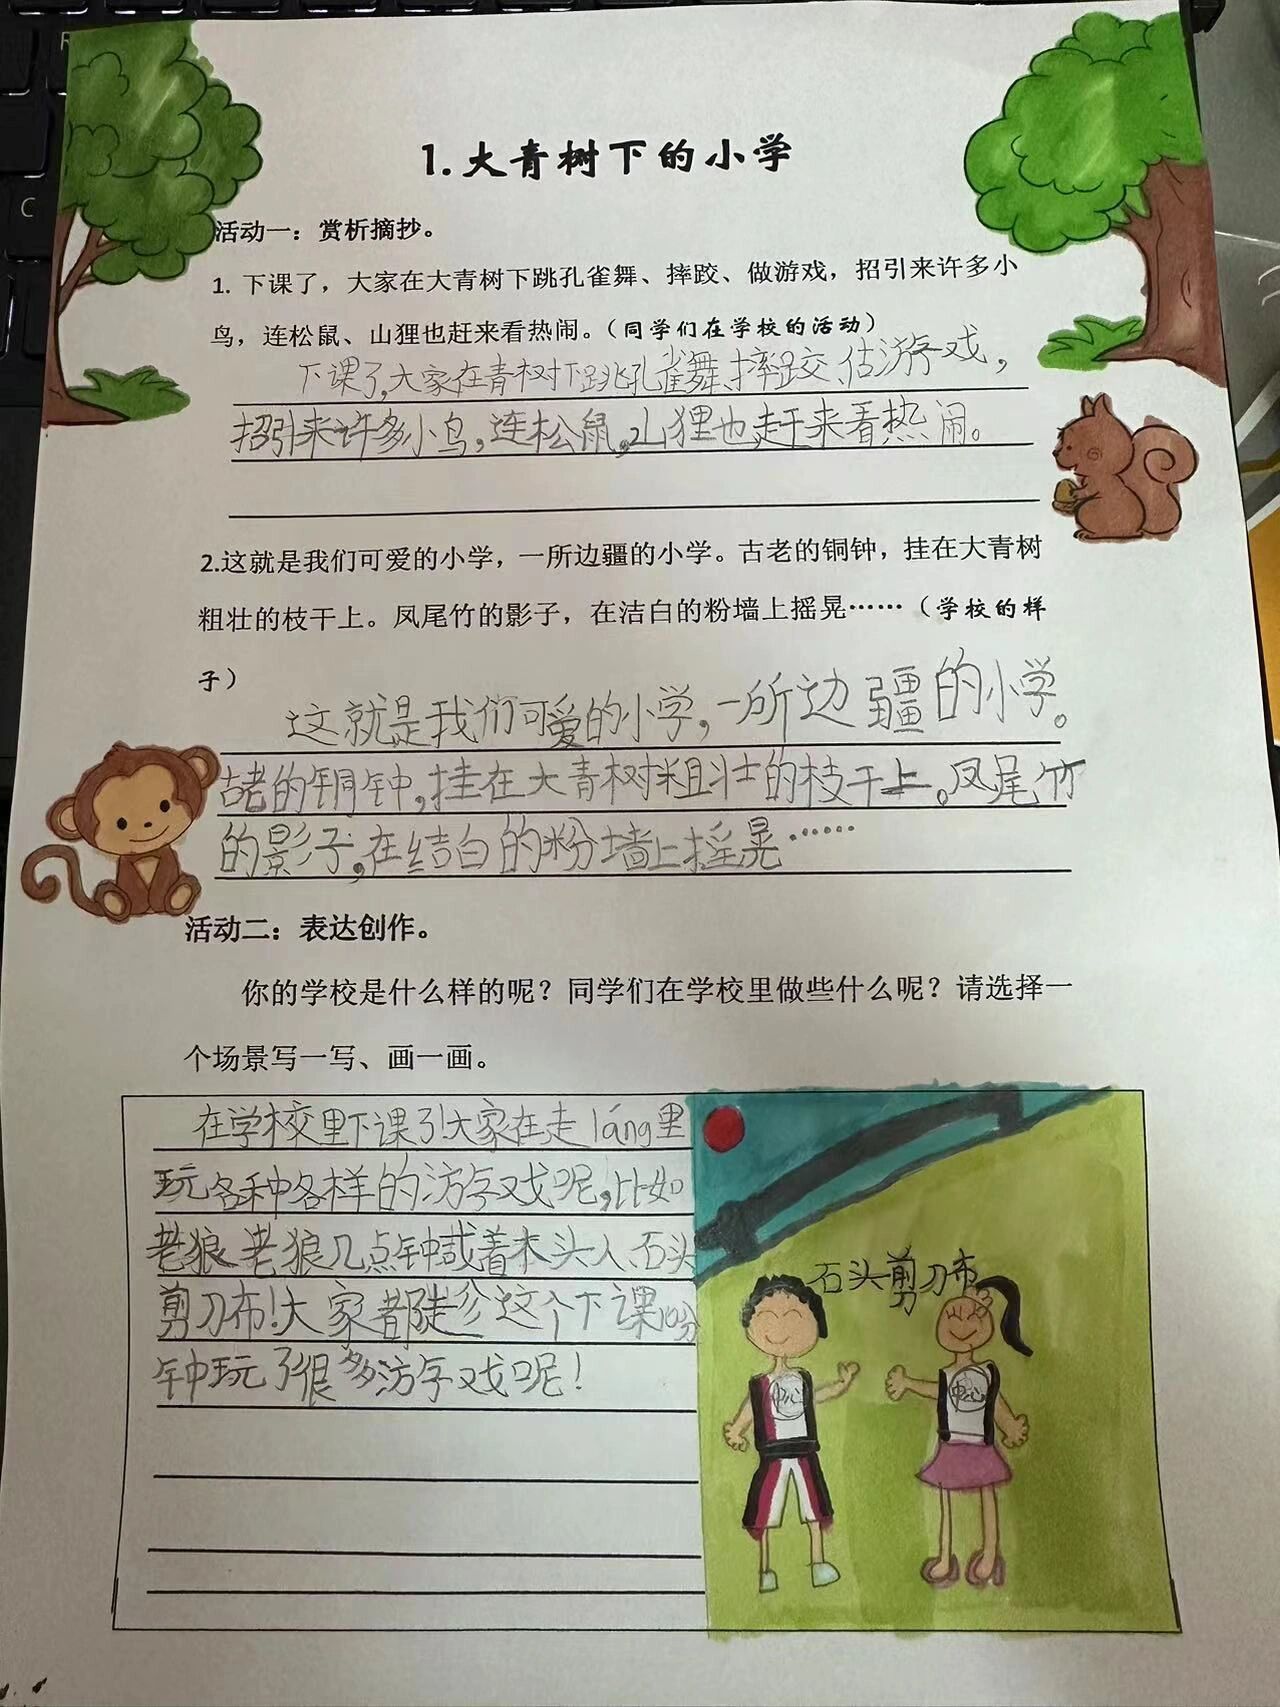 1.大青树下的小学
活动一：赏析摘抄。
1. 下课了，大家在大青树下跳孔雀舞、摔跤、做游戏，招引来许多小
鸟，连松鼠、山狸也赶来看热闹。（同学们在学校的活动）
下课了,大家在青树下跳孔雀舞、摔跤、估游戏，
招引来许多小鸟,连松鼠,山狸也赶来看热闹。
2.这就是我们可爱的小学，一所边疆的小学。古老的铜钟，挂在大青树
粗壮的枝干上。凤尾竹的影子，在洁白的粉墙上摇晃……（学校的样
子）
这就是我们可爱的小学,一所边疆的小学。
古老的铜钟,挂在大青树粗壮的枝干上。凤尾竹
的影子,在结白的粉墙上摇晃……
活动二：表达创作。
你的学校是什么样的呢？同学们在学校里做些什么呢？请选择一
个场景写一写、画一画。
在学校里下课了!大家在走láng里
玩各种各样的游戏呢,比如
老狼老狼几点钟或着木头人、石头
剪刀布!大家都这个下课10分
钟玩了很多游戏呢!
石头剪刀布
中心
中心
C